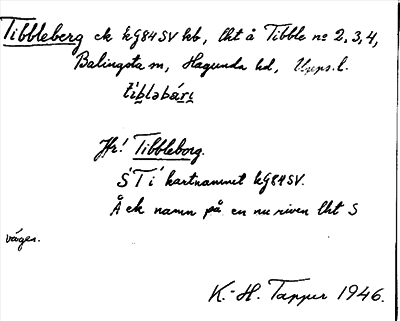 Tibbleberg ek kG84SV kb, lht å Tibble no 2, 3, 4,
Balingsta sn, Hagunda hd, Upps. l.
tìbləbárị
Jfr! Tibbleborg.
S "T i" kartnamnet kG84SV.
Å ek namn på en nu riven lht S
vägen.
K.-H. Tapper 1946.